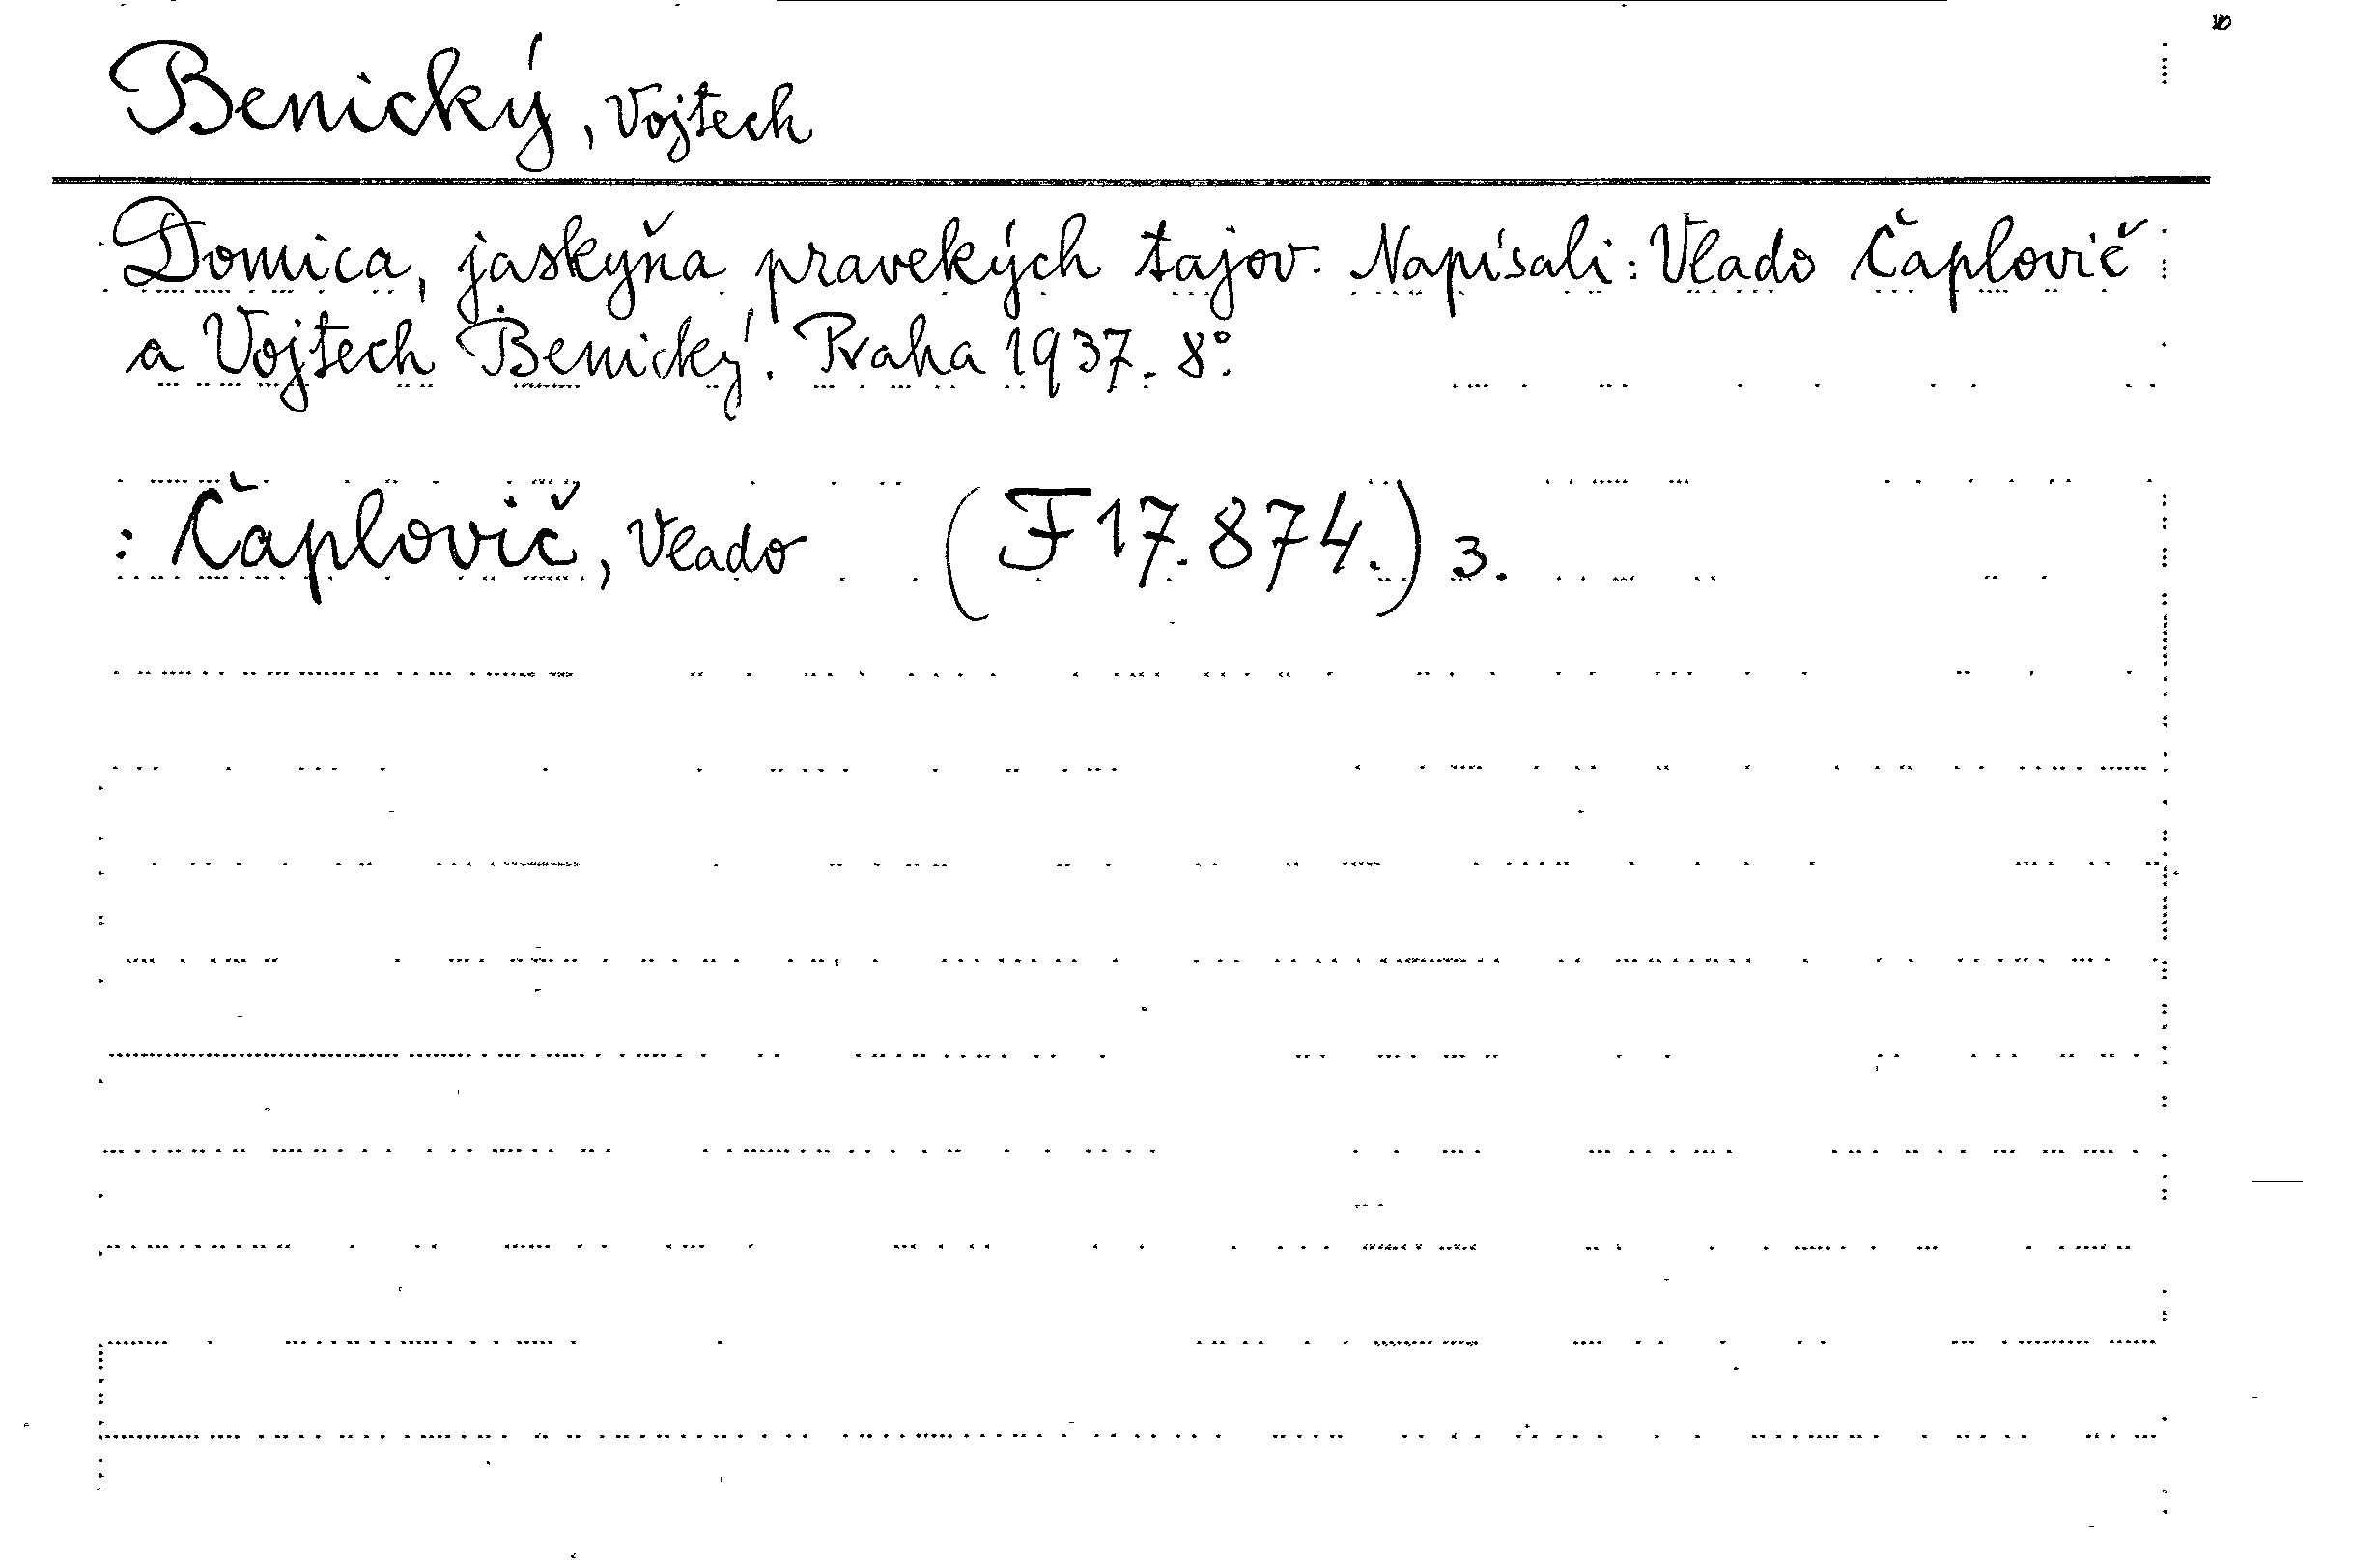 Benický, Vojtech
Domica, jaskyňa pravekých tajov. Napísali: Vlado Čaplovič
a Vojtech Benický. Praha 1937. 8°.
: Čaplovič, Vlado (F 17.874.) 3.